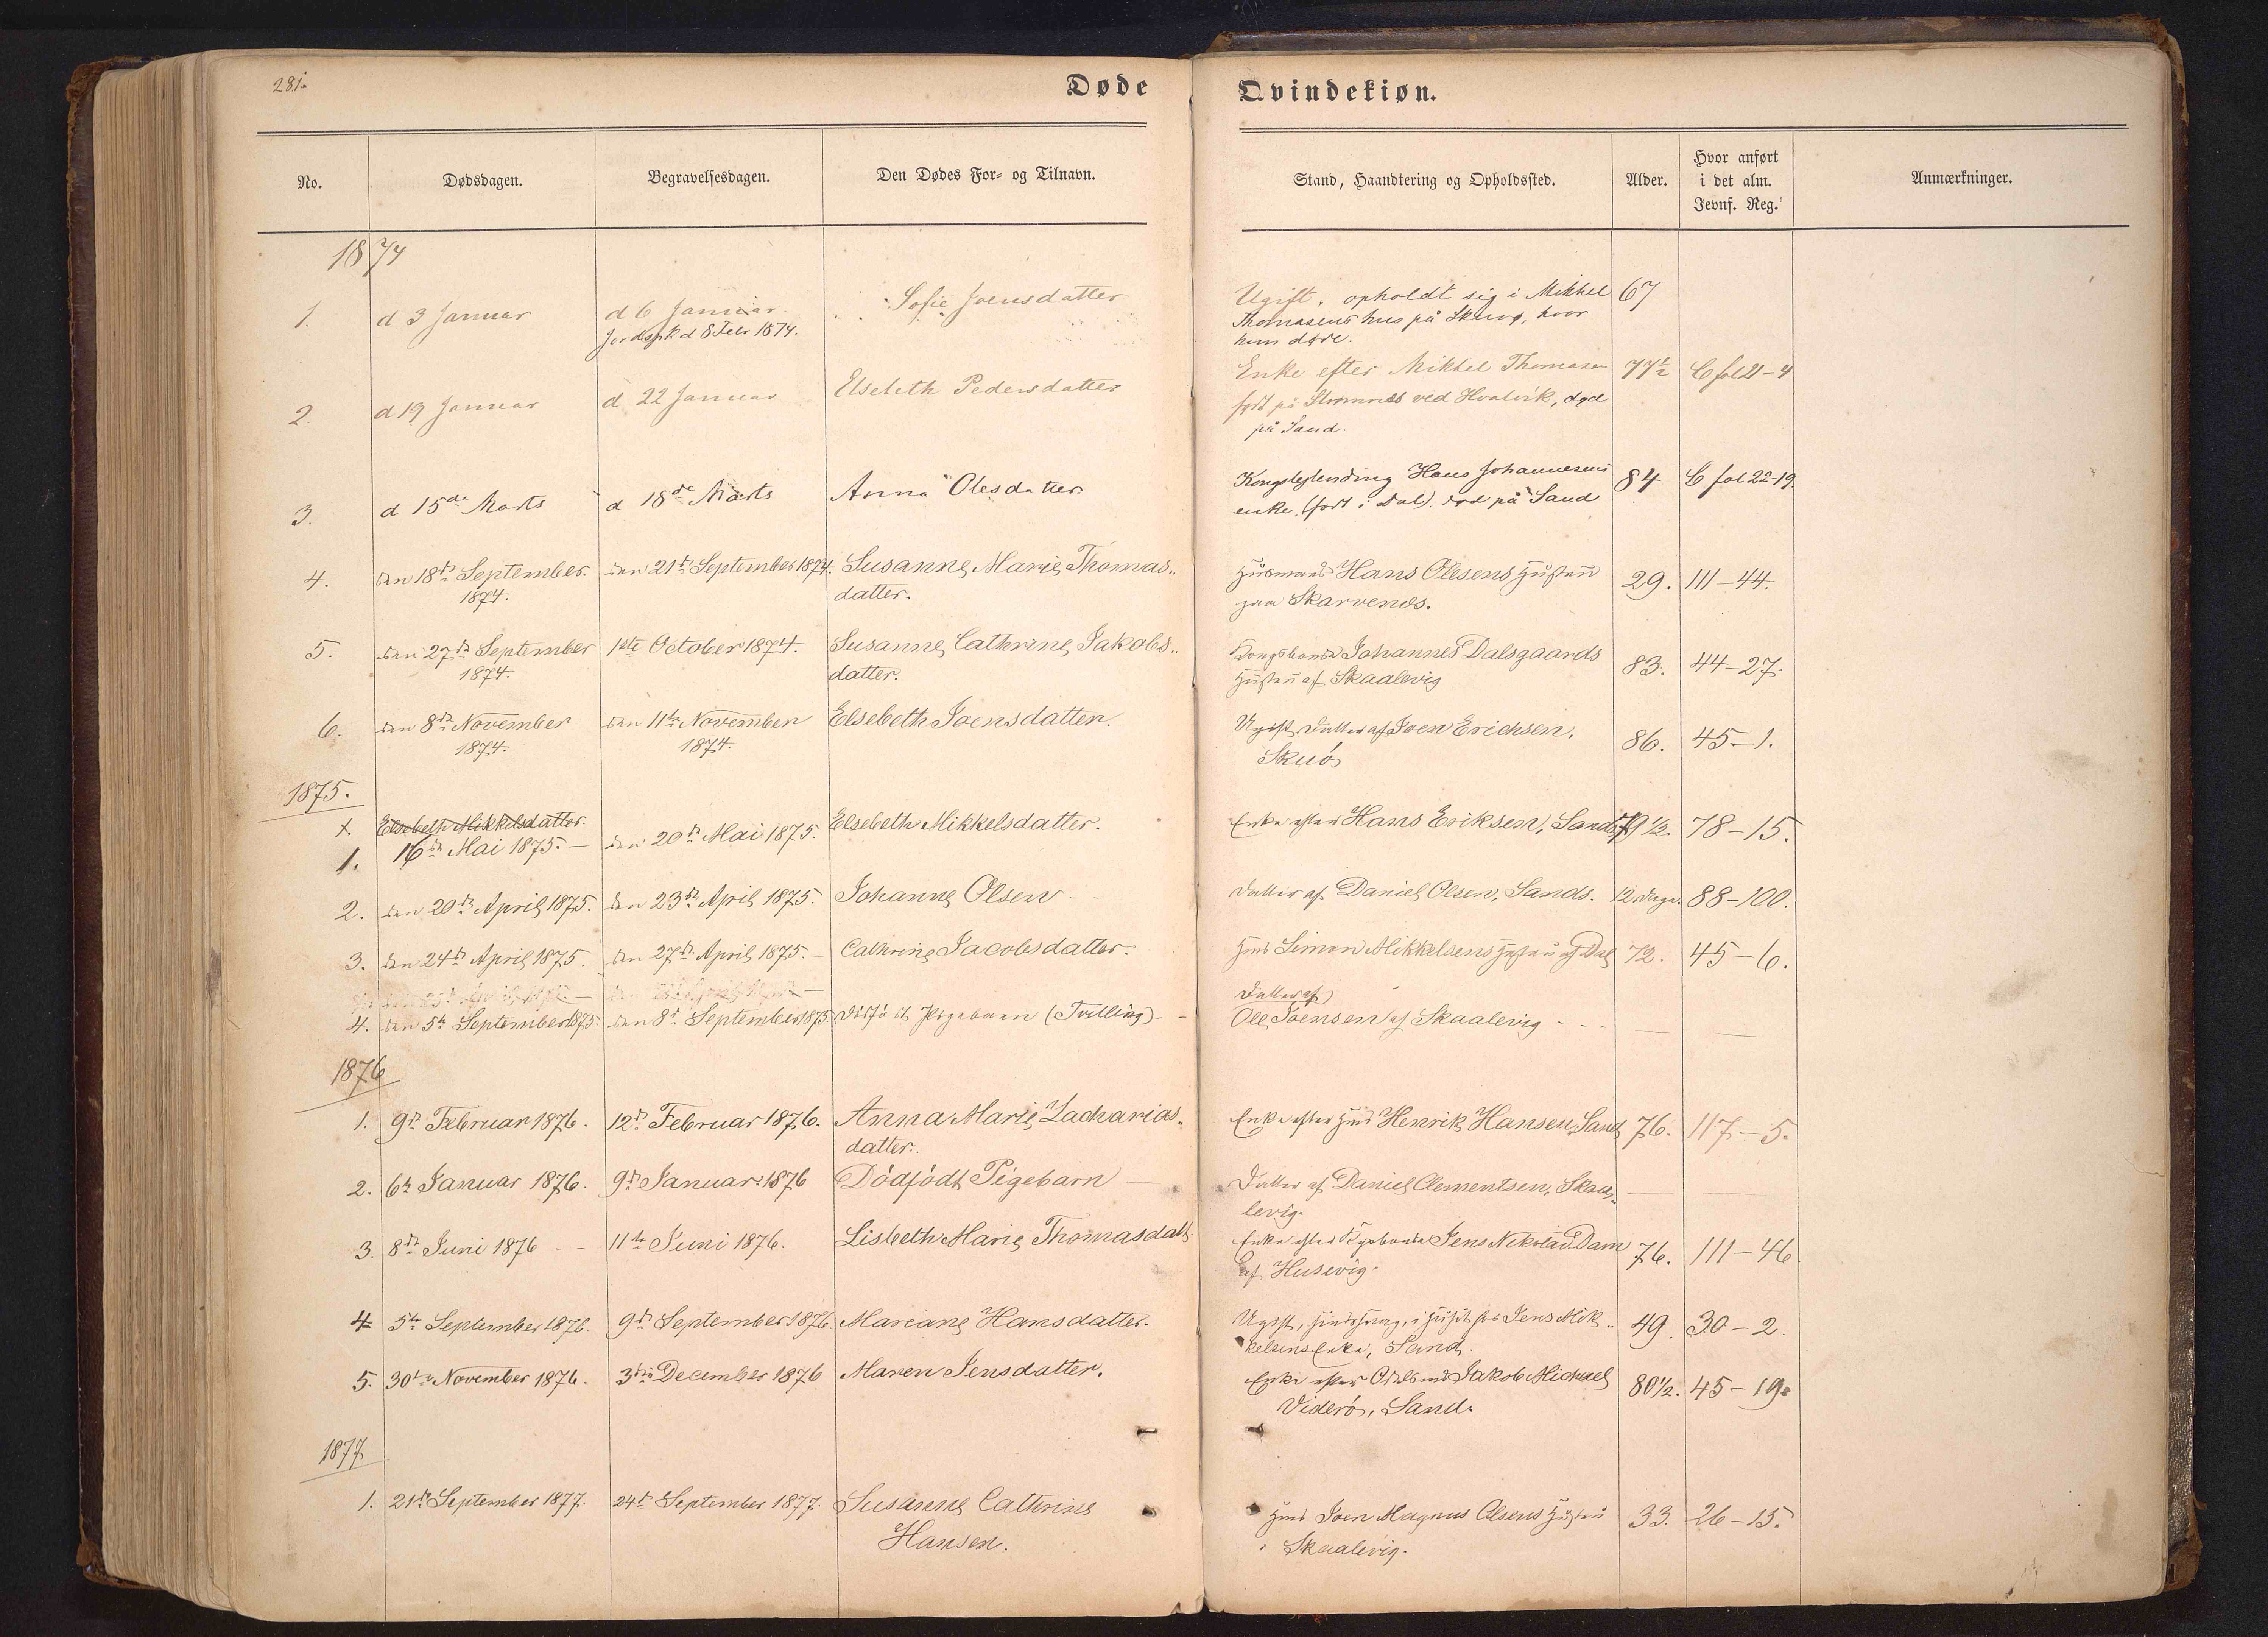 281.
Døde
Qvindekiøn.
No.
Dødsdagen.
Begravelsesdagen.
Den Dødes For= og Tilnavn.
Stand, Haandtering og Opholdssted.
Alder.
Hvor anført
i det alm.
Jevnf. Reg.
Anmærkninger.
1874
1.
d 3 Januar
d 6 Januar
Jordspk d 8 Febr 1874.
Sofie Joensdatter
Ugift, opholdt sig i Mikkel
Thomasens hus på Skuø, hvor
hun døde.
67
2.
d 19 Januar
d 22 Januar
Elsebeth Pedersdatter
Enke efter Mikkel Thomasen
født på Strømnes ved Hvalvik, død
på Sand.
77½
C fol 21-4
3.
d 15de Marts
d 18de Marts
Anna Olesdatter
Hans Johannesens
enke, (født i Dal). død på Sand
84
C fol 22-19.
4.
den 18de September.
1874.
den 21de September 1874.
Susanne Marie Thomas..
datter.
Husmand Hans Olesens Hustru
paa Skarvenes.
29.
111-44.
5.
den 27de September
1874.
1ste October 1874.
Susanne Cathrine Jakobs..
datter.
Kongsbonde Johannes Dalsgaards
Hustru af Skaalevig
83.
44-27.
6.
den 8de November
1874.
den 11te November
1874.
Elsebeth Joensdatter.
Ugift, Datter af Joen Erichsen,
Skuø
86.
45-1.
1875.
1.
Elsebeth Mikkelsdatter.
16de Mai 1875. -
den 20de Mai 1875.
Elsebeth Mikkelsdatter.
Enke efter Hans Eriksen, Sand
79½.
78-15.
2.
den 20de April 1875.
den 23de April 1875.
Johanne Olsen
Datter af Daniel Olsen, Sands.
12 Dage.
88-100.
3.
den 24de April 1875.
den 27de April 1875. -
Cathrine Jacobsdatter.
Hmd Simon Mikkelsens Hustru af Dal
72.
45-6.
4.
den 5te September 1875.
den 8de September 1875.
Dødfødt Pigebarn (Tvilling) -
Datter af
Ole Joensen af Skaalevig - - -
1876
1.
9de Februar 1876.
12te Februar 1876.
Anna Marie Zacharias..
datter.
Enke efter Hmd Henrik Hansen, Sand
76.
117-5.
2.
6te Januar 1876.
9de Januar 1876
Dödfödt Pigebarn
Datter af Daniel Clementsen, Skaa..
levig.
3.
8de Juni 1876 - -
11te Juni 1876.
Lisbeth Marie Thomasdatt
Enke efter Jens Nikolai Dam
af Husevig.
76.
111-46.
4
5te September 1876.
9de September 1876.
Mariane Hansdatter.
Ugift, i Huset hos Jens Mik..
kelsens Enke, Sand.
49.
30-2.
5.
30te November 1876.
3die December 1876
Maren Jensdatter.
Enke efter Jakob Michael
Viderö, Sand.
80½.
45-19.
1877
1.
21de September 1877.
24de September 1877.
Susanne Cathrine
Hansen.
Hmd Joen Magnus Olsens Hustru
i Skaalevig.
33.
26-15.